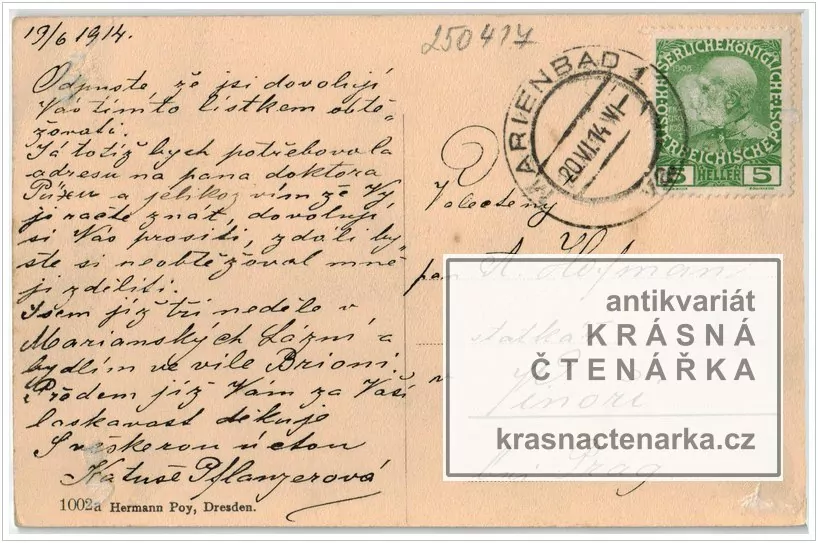 19/6 1914.
250417
Odpusťte že jsi dovoluji
Vás tímto lístkem obtě-
žovati.
Já totiž bych potřebovala
adresu na pana doktora
a jelikož vím že Vy,
ji račte znát, dovoluji
si Vás prositi, zdali by-
ste si neobtěžoval mně
ji zděliti.
Jsem již tři neděle v
Mariánských Lázní a
bydlím ve vile Brioni.
Předem již Vám za Vaší
laskavost děkuje
S veškerou úctou
Katuše Pflanzerová
1002a Hermann Poy, Dresden.
MARIENBAD 1
20.VI.14.VI
KAISERLICHE KÖNIGLICHE
ÖSTERREICHISCHE
5 HELLER 5
Velectěný
pan A. Hofmann
v Vinoři
Prag
antikvariát
KRÁSNÁ
ČTENÁŘKA
krasnactenarka.cz